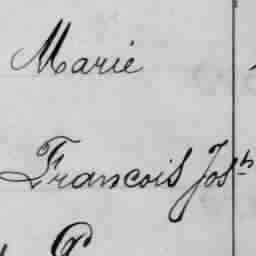 Marie
Francois Josh